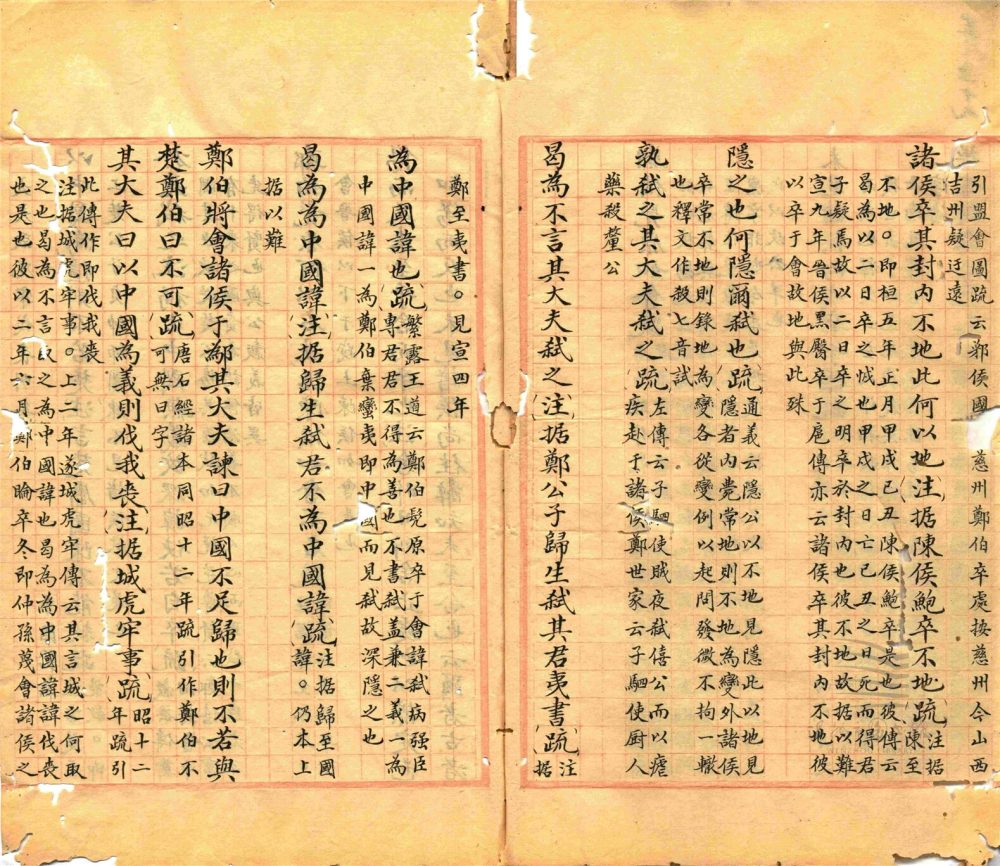 引盟會圖疏云鄭侯國 慈州鄭伯卒處按慈州今山西
吉州疑迂遠
諸侯卒其封內不地此何以地(注)据陳侯鮑卒不地(疏)注据
陳至
不地。即桓五年正月甲戌己丑陳侯鮑卒是也彼傳云
曷為以二日卒之怴也甲戌之日亡已丑之日死而得君
子疑焉故以二日卒之明卒於封內也彼不地故据以難
宣九年晉侯黑臀卒于扈傳亦云諸侯卒其封內不地彼
以卒于會故地與此殊
隱之也何隱爾弑也(疏)通義云隱公以不地見隱此以地見
隱者內薨常地則不地為變外諸侯
卒常不地則錄地為變各從變例以起問發微不拘一轍
也釋文作殺七音試
孰弑之其大夫弑之(疏)左傳云子駟使賊夜弑僖公而以瘧
疾赴于諸侯鄭世家云子駟使厨人
藥殺釐公
曷為不言其大夫弑之(注)据鄭公子歸生弑其君夷書(疏)注
据
鄭至夷書。見宣四年
為中國諱也(疏)繁露王道云鄭伯髡原卒于會諱弑病强臣
專君不得為善也不書弑盖兼二義一為
中國諱一為鄭伯棄蠻夷即中國而見弑故深隱之也
曷為為中國諱(注)据歸生弑君不為中國諱(疏)注据歸至國
諱。仍本上
据以難
鄭伯將會諸侯于鄬其大夫諫曰中國不足歸也則不若與
楚鄭伯曰不可(疏)唐石經諸本同昭十二年疏引作鄭伯不
可無曰字
其大夫曰以中國為義則伐我喪(注)据城虎牢事(疏)昭十二
年疏引
此傳作即伐我喪
注据城虎牢事。上二年遂城虎牢傳云其言城之何取
之也曷為不言取之為中國諱也曷為為中國諱諱伐喪
也是也彼以二年六月鄭伯睔卒冬即仲孫蔑會諸侯之